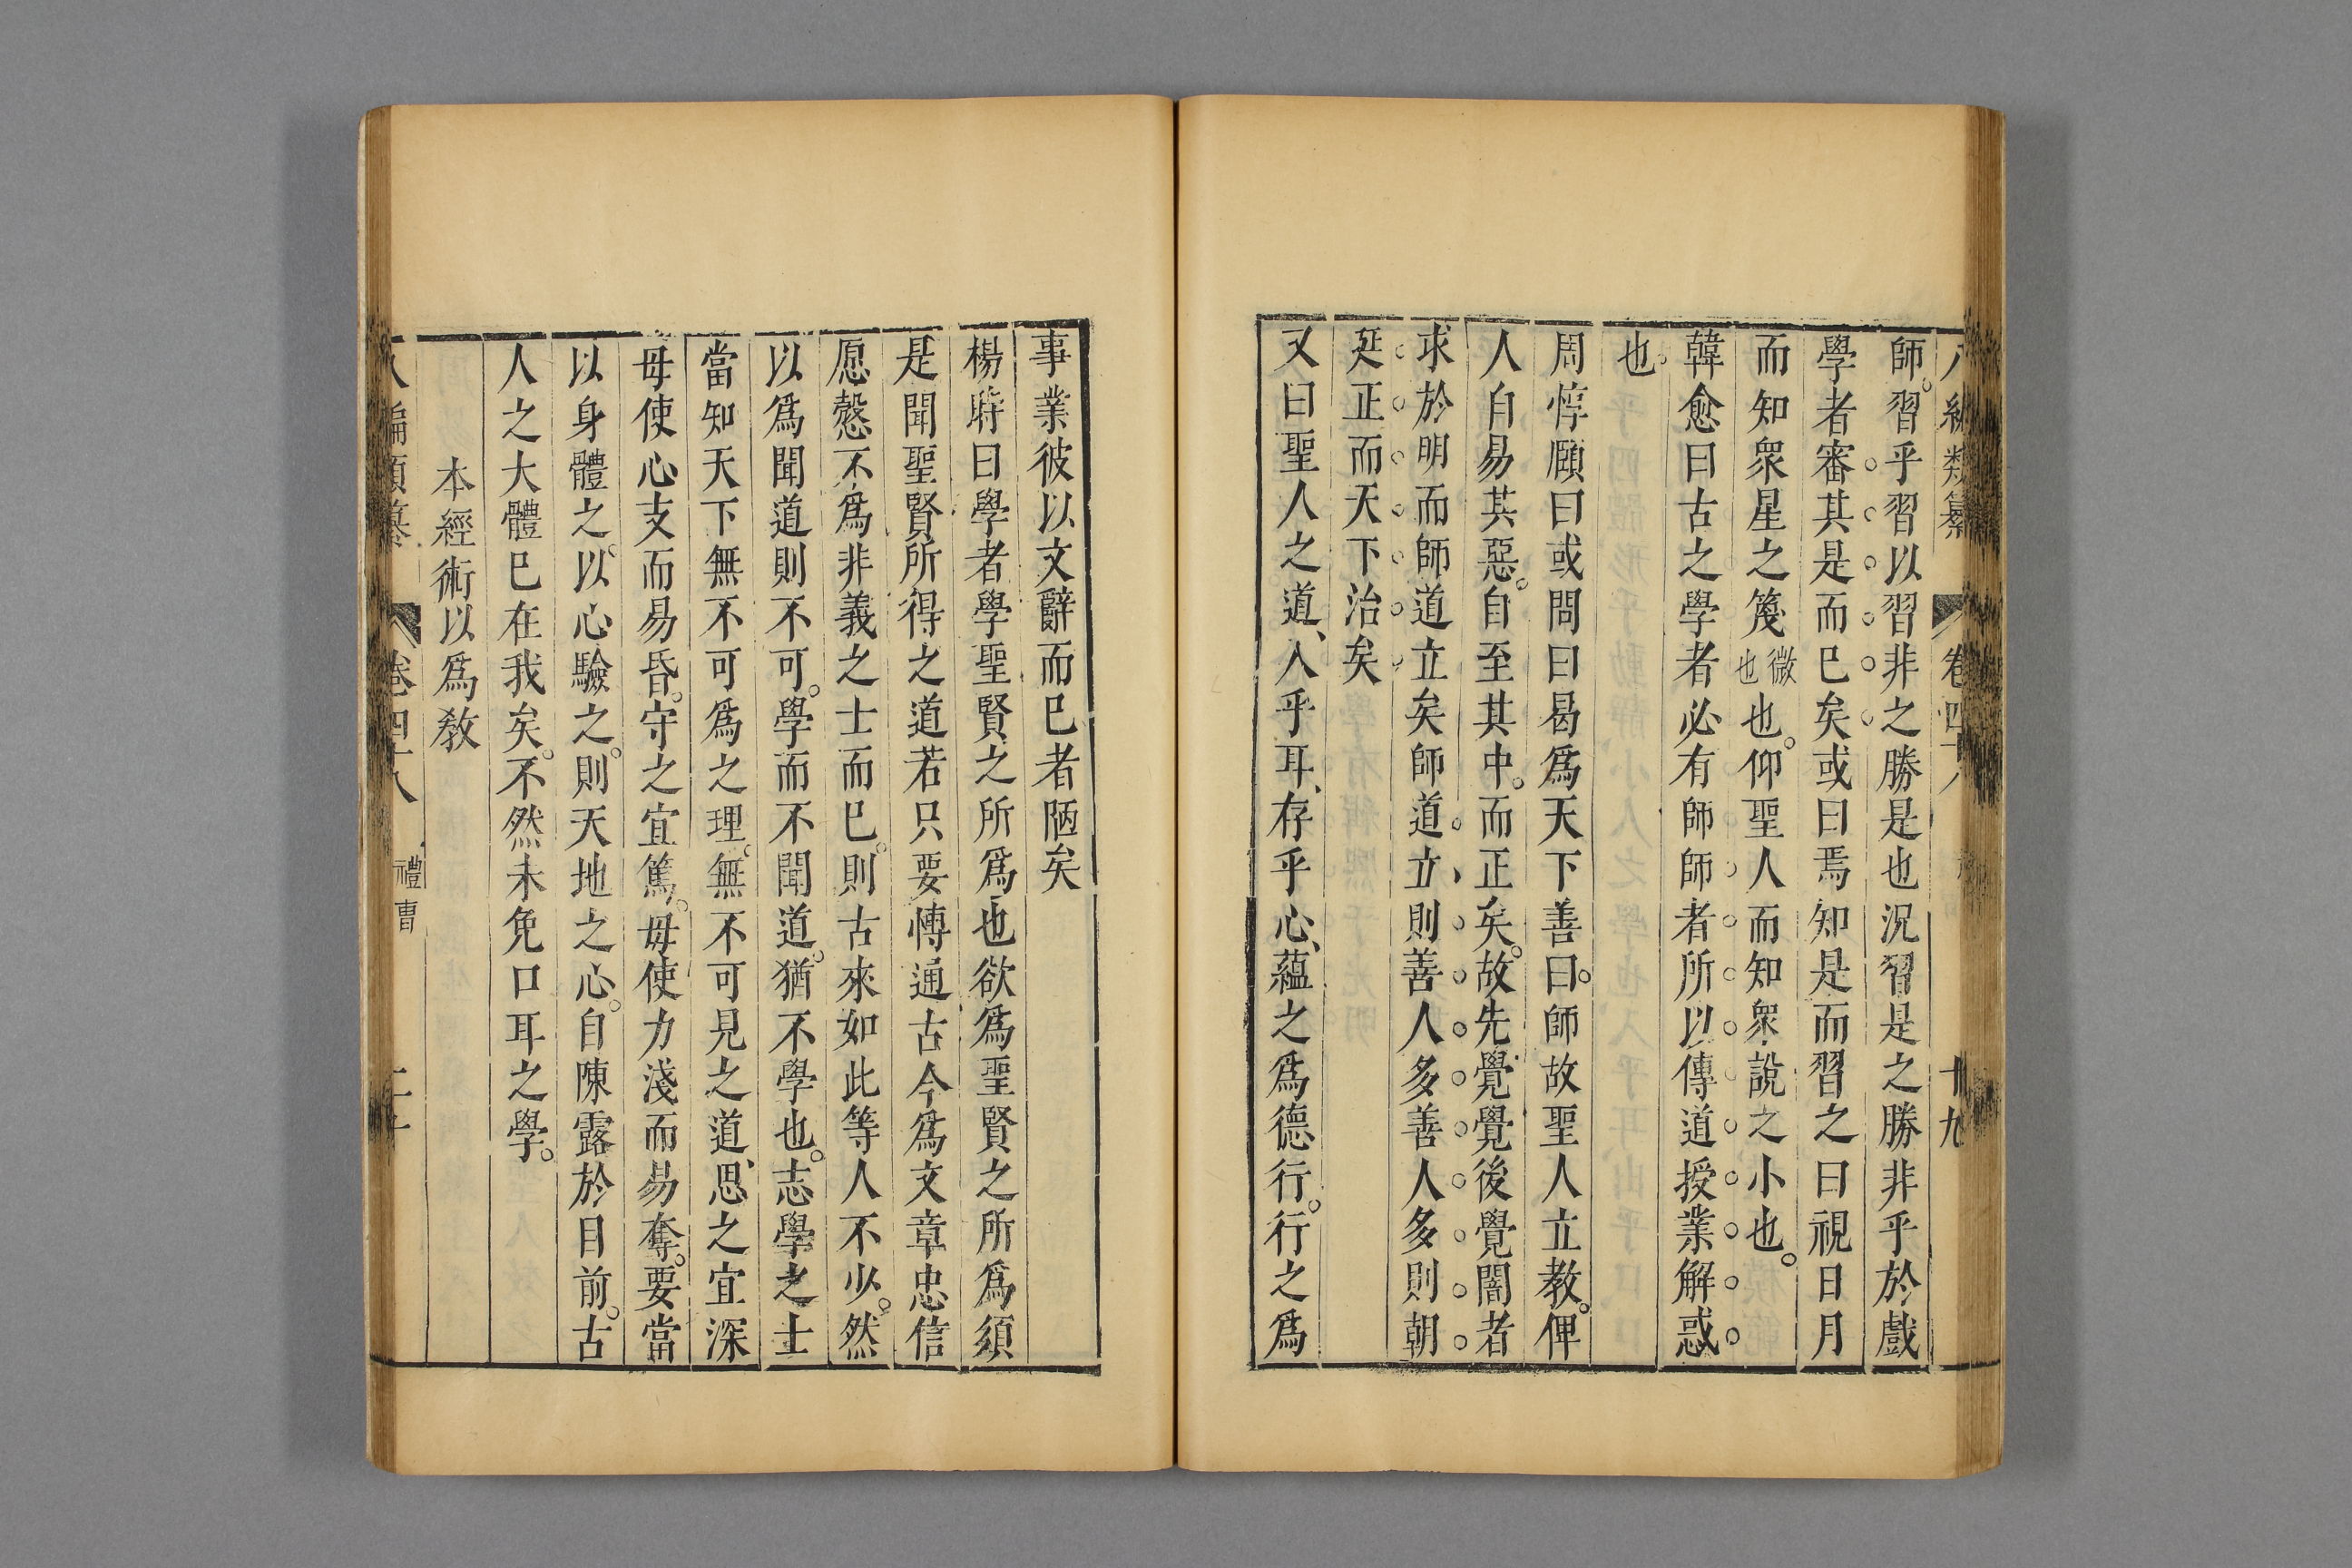 師習乎習以習非之勝是也況習是之勝非乎於戲
學者審其是而已矣或曰焉知是而習之曰視日月
而知衆星之篾微也也仰聖人而知衆說之小也
韓愈曰古之學者必有師師者所以傳道授業解惑
也
周惇頤曰或問曰曷爲天下善曰師故聖人立教俾
人自易其惡自至其中而正矣故先覺覺後覺闇者
求於明而師道立矣師道立則善人多善人多則朝
廷正而天下治矣
又曰聖人之道入乎耳存乎心蘊之爲德行行之爲
事業彼以文辭而已者陋矣
楊時曰學者學聖賢之所爲也欲爲聖賢之所爲須
是聞聖賢所得之道若只要博通古今爲文章忠信
愿慤不爲非義之士而已則古來如此等人不少然
以爲聞道則不可學而不聞道猶不學也志學之士
當知天下無不可爲之理無不可見之道思之宜深
毋使心支而易昏守之宜篤毋使力淺而易奪要當
以身體之以心驗之則天地之心自陳露於目前古
人之大體已在我矣不然未免口耳之學
本經術以爲教
八編類纂 卷四十八 禮曹